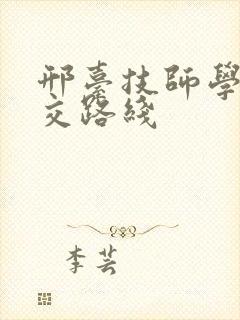 邢臺技師學
交路綫
李芸